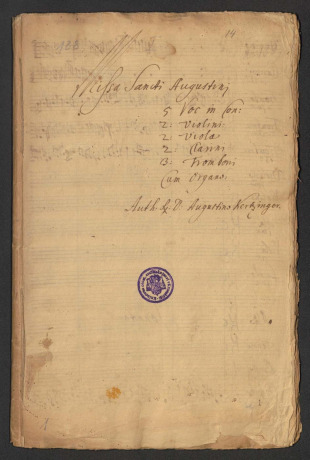 14
Missa Sancti Augustini
5 Voc in Con:
2: Violini
2 Viola
2: Clarini
3: Tromboni
Cum Organo.
Auth: R. D Augustino Kertzinger.